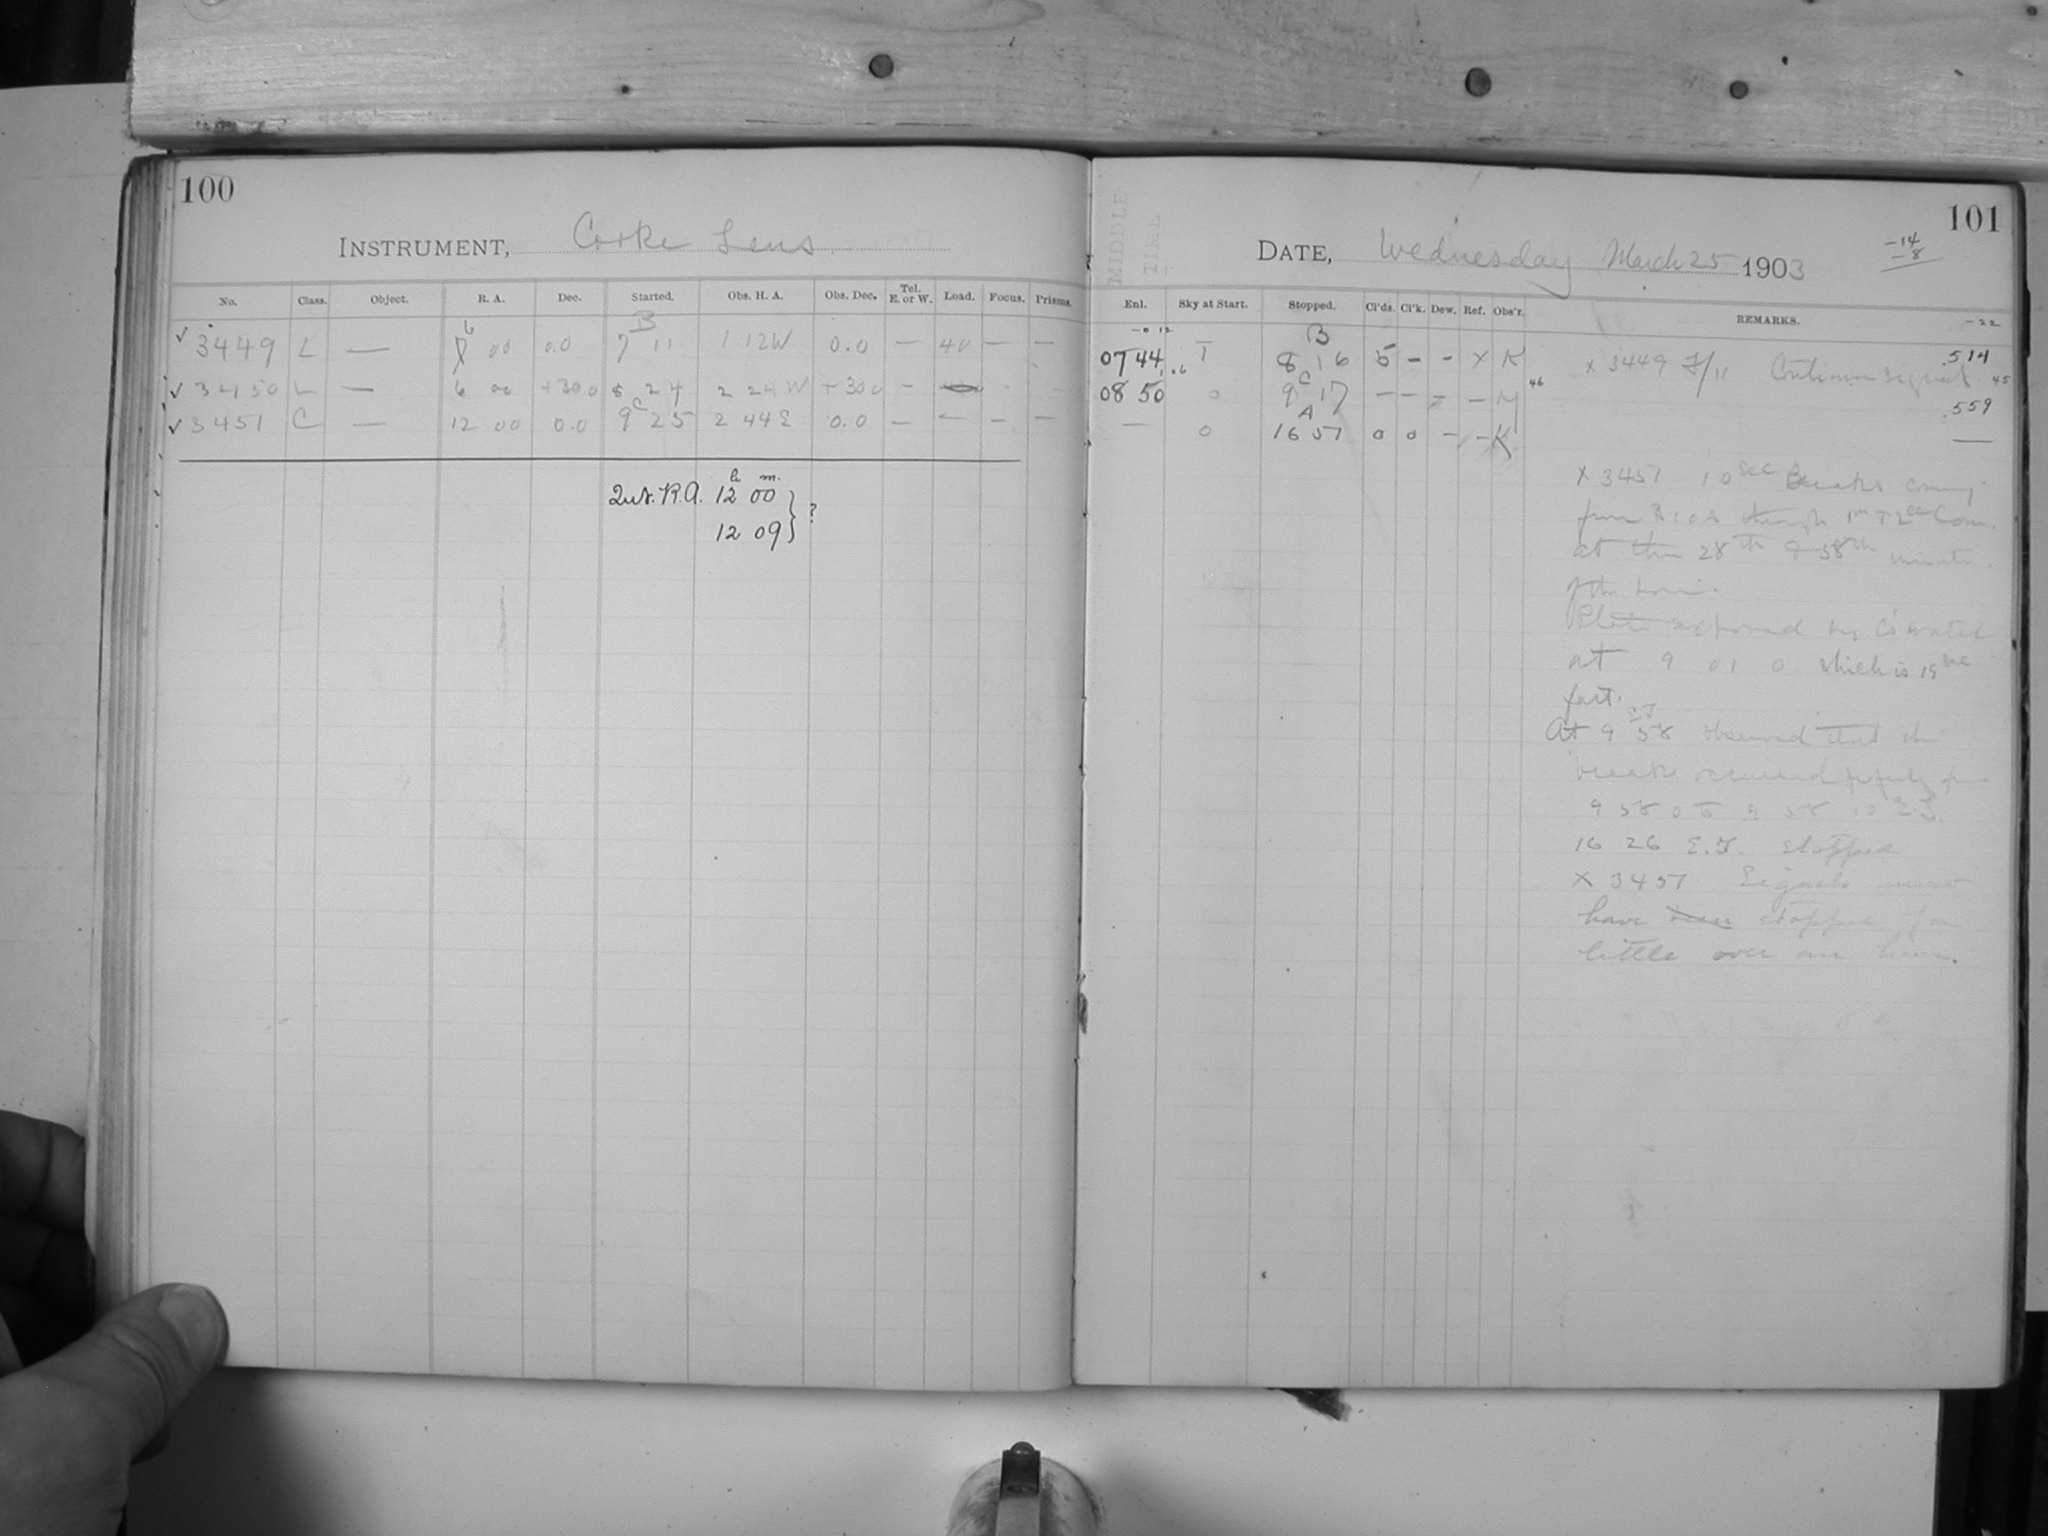 100
INSTRUMENT, Cooke Lens
No. Class. Object. R. A. Dec. Started. Obs. H. A. Obs. Dec. Tel. E. or W. Load. Focus. Prisms.
B
6
✓ 3449 L — 7 00 0.0 7 11 1 12W 0.0 — 40 — —
✓ 3450 L — 6 00 +30 0 8 24 2 24 W +30 0 -
C
✓ 3451 C — 12 00 0.0 9 25 2 44 E 0.0 — — — —
h m.
Int. R.A. 12 00 } ?
12 09
101
MIDDLE TIME
DATE, Wednesday March 25 1903
-14
-8
Enl. Sky at Start. Stopped. Cl'ds. Cl'k. Dew. Ref. Obs'r. REMARKS.
-0 12 B -22
07 44.6 T 8 16 5 - - x K x 3449 F/11 Continuous signal .514
C 46 45
08 50 0 9 17 — — - — M .559
A
— 0 16 57 0 0 - - K —
x 3451 10 sec Breaks coming
from through 1st + 2nd Com.
at the 28th & 58th minute
of the hour.
Plate exposed by
at 9 01 0 which is 19 sec
fast.
At 9 58 observed that the
break occurred
9 58 0 to 9 58 10 E.T.
16 26 E.T. stopped
x 3451 Signals must
have been stopped for
little over an hour.